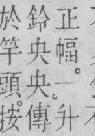 正幅。一升
鈴央央。傳
於竿頭。按